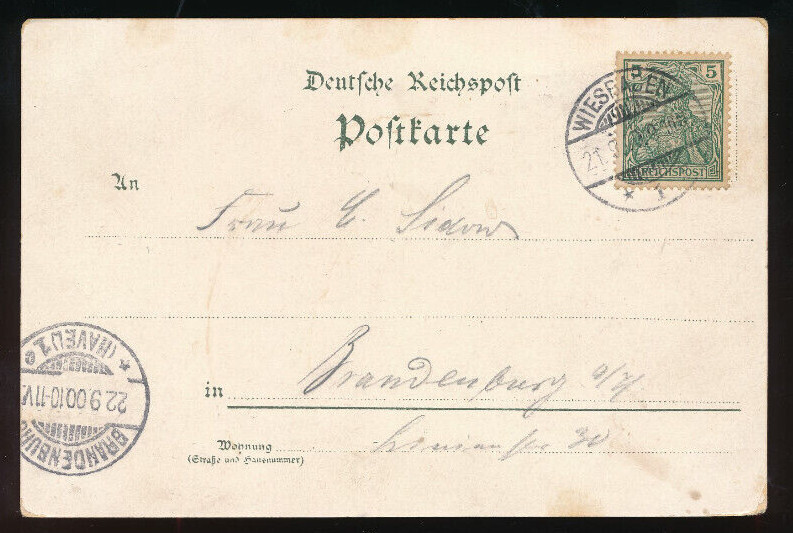 Deutsche Reichspost
Postkarte
5 5
REICHSPOST
WIESBADEN
21.9.
* 1
An
Frau E. Sidow
in Brandenburg a/H
Wohnung
(Straße und Hausnummer)
30
BRANDENBURG
22.9.00.10-11V.
* (HAVEL) 1 c